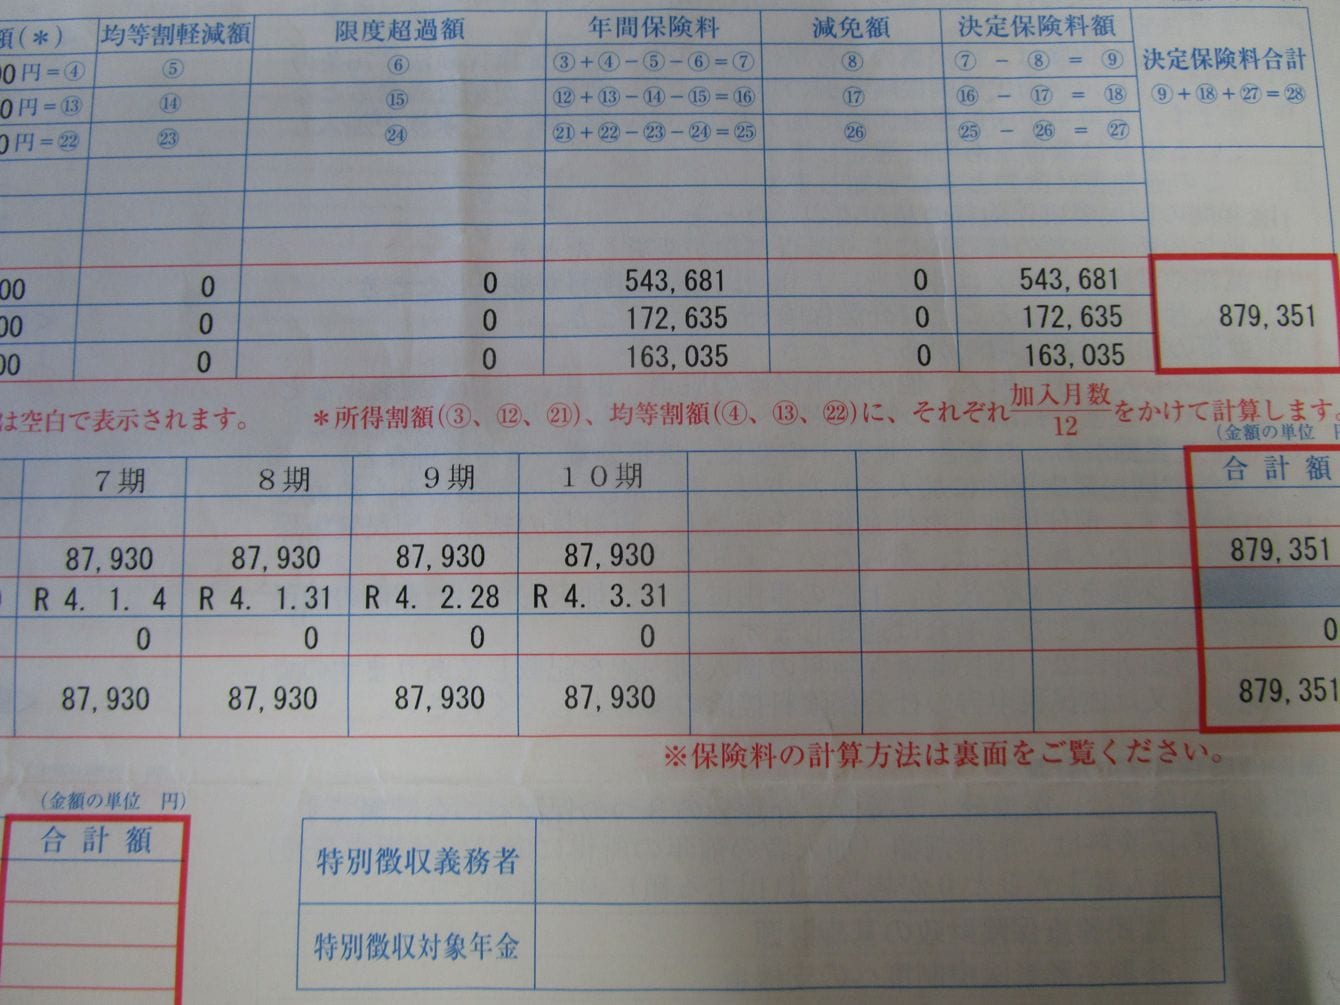 額(＊) 均等割軽減額 限度超過額 年間保険料 減免額 決定保険料額 決定保険料合計
00円=④ ⑤ ⑥ ③+④-⑤-⑥=⑦ ⑧ ⑦ - ⑧ = ⑨
0円=⑬ ⑭ ⑮ ⑫+⑬-⑭-⑮=⑯ ⑰ ⑯ - ⑰ = ⑱ ⑨+⑱+㉗=㉘
0円=㉒ ㉓ ㉔ ㉑+㉒-㉓-㉔=㉕ ㉖ ㉕ - ㉖ = ㉗
00 0 0 543,681 0 543,681
00 0 0 172,635 0 172,635 879,351
00 0 0 163,035 0 163,035
は空白で表示されます。 ＊所得割額(③、⑫、㉑)、均等割額(④、⑬、㉒)に、それぞれ加入月数/12をかけて計算します
(金額の単位 円
7期 8期 9期 10期 合計額
87,930 87,930 87,930 87,930 879,351
R 4. 1. 4 R 4. 1.31 R 4. 2.28 R 4. 3.31
0 0 0 0 0
87,930 87,930 87,930 87,930 879,351
※保険料の計算方法は裏面をご覧ください。
(金額の単位 円)
合計額
特別徴収義務者
特別徴収対象年金